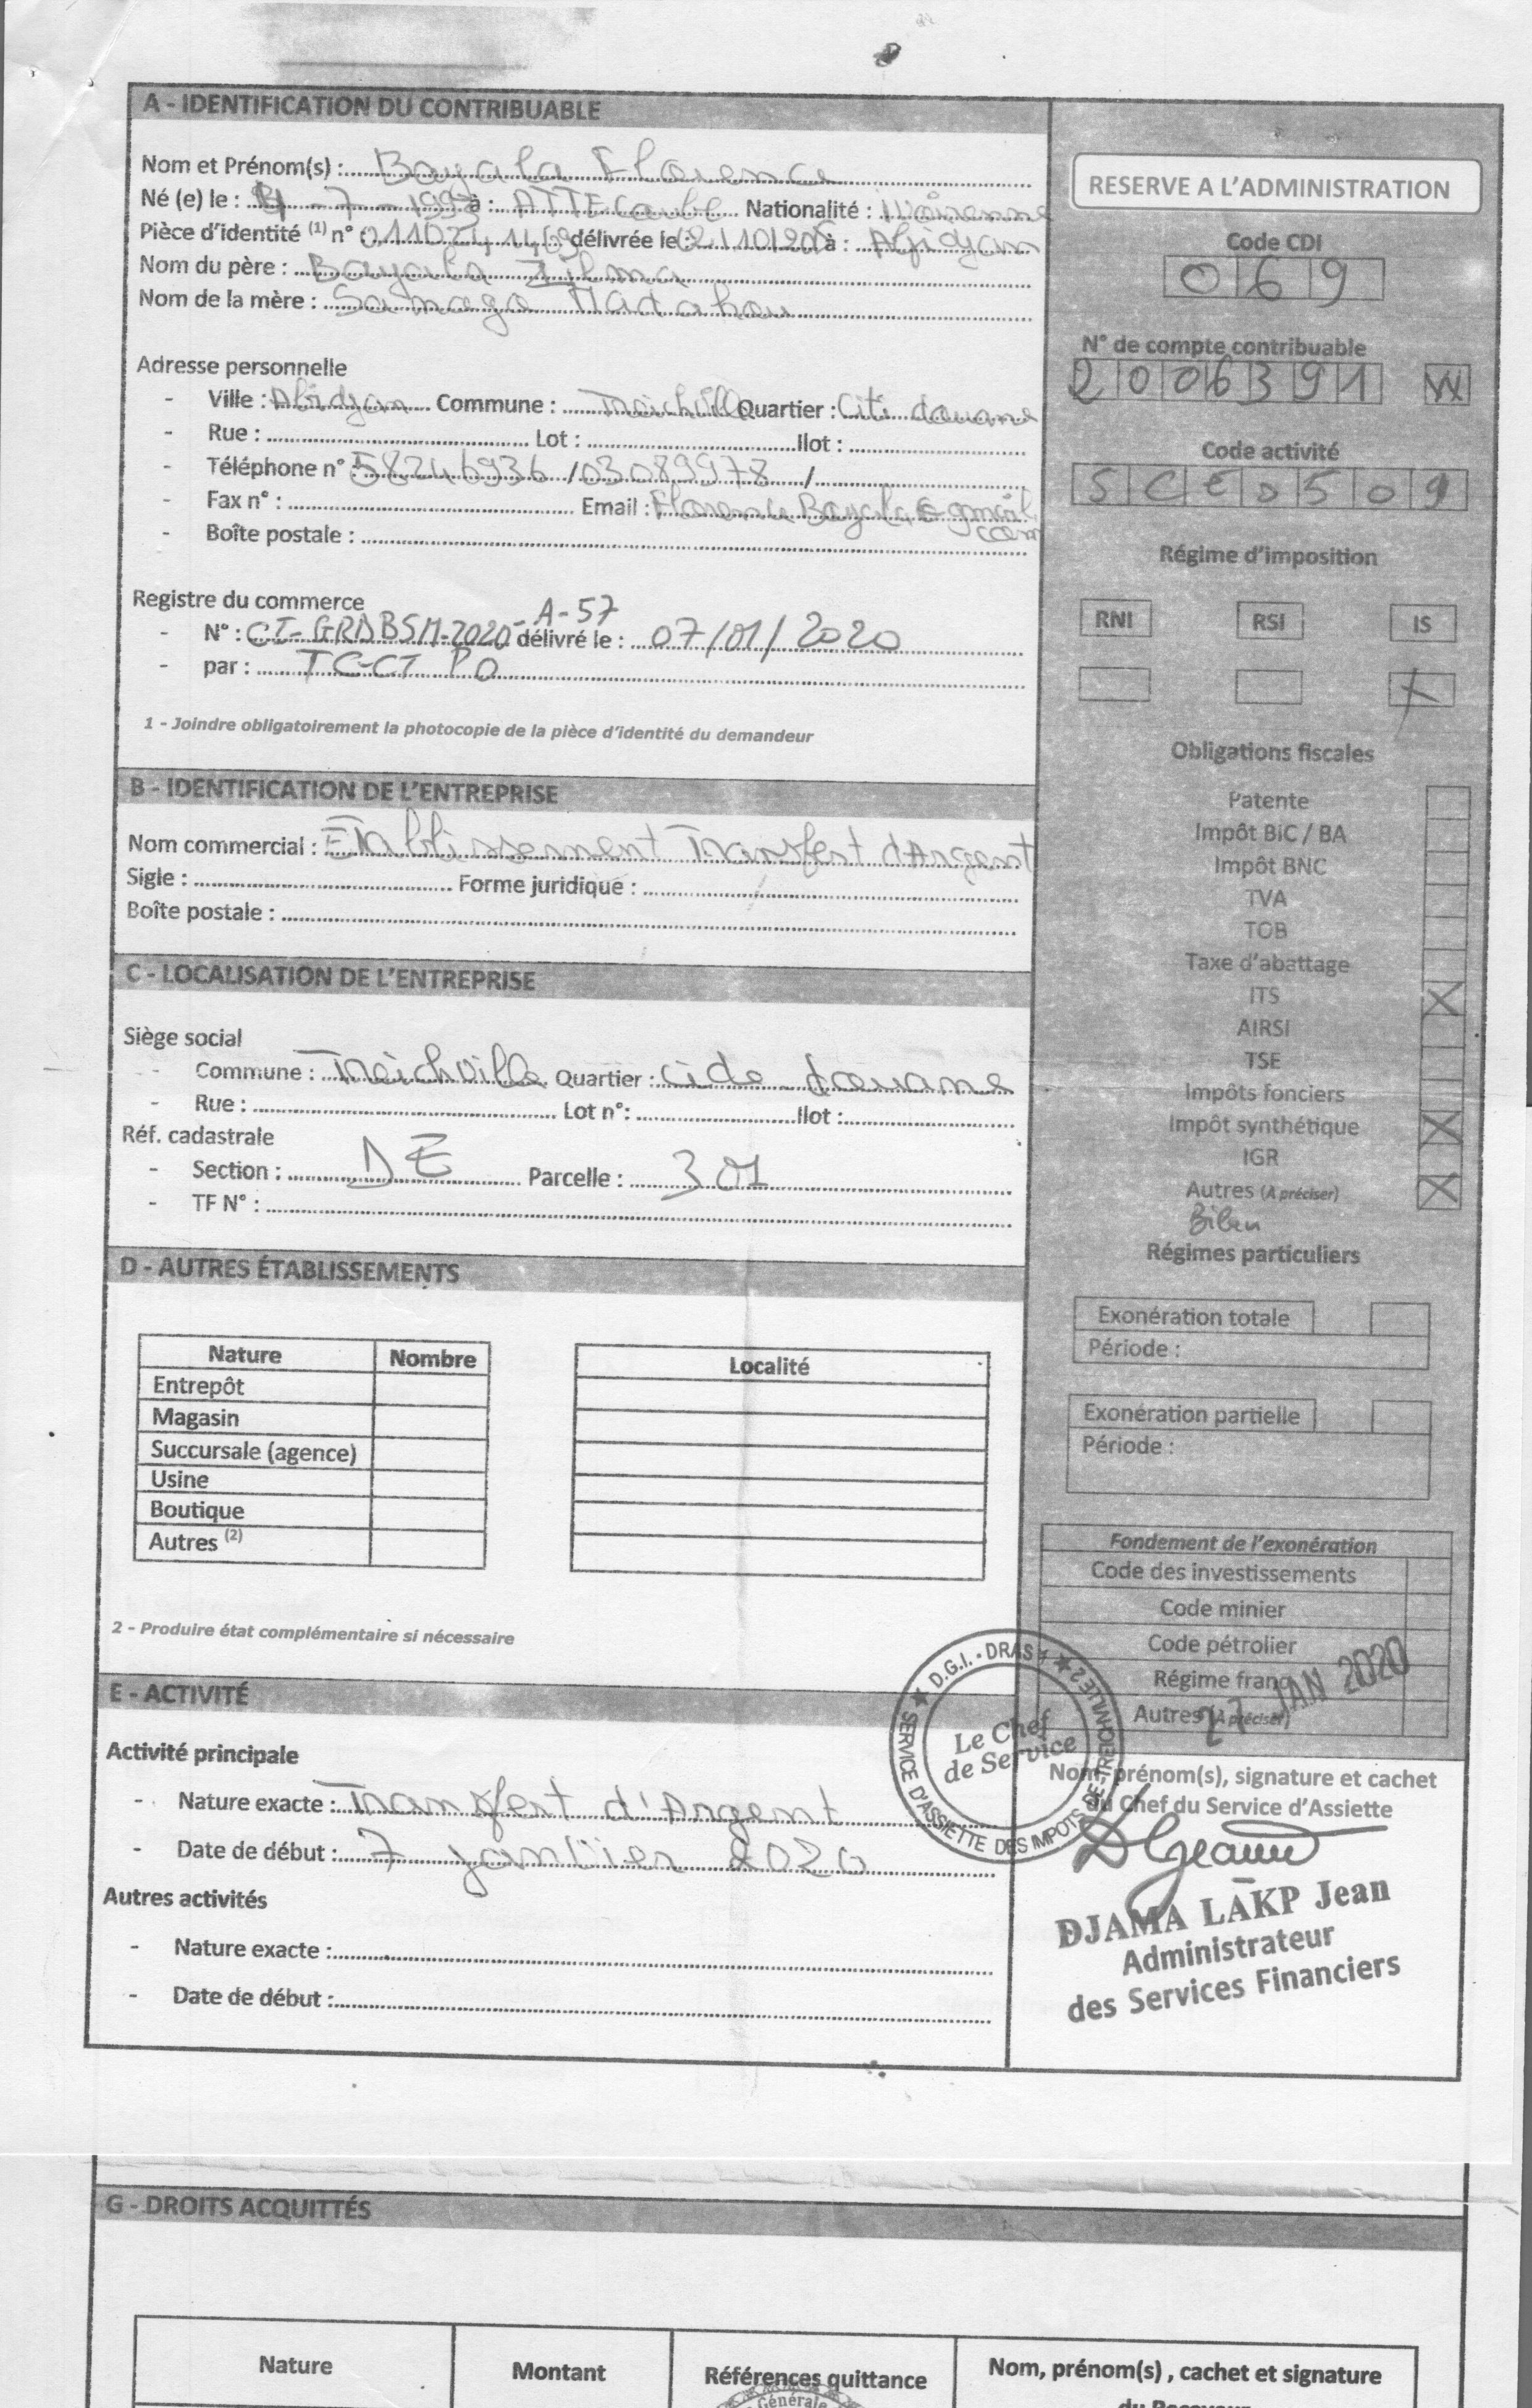 A - IDENTIFICATION DU CONTRIBUABLE
Nom et Prénom(s) : Bayala Florence
Né (e) le : -7-199 à : ATTECoube Nationalité : Ivoirienne
Pièce d'identité (1) n° : délivrée le : à : Abidjan
Nom du père : Bayala
Nom de la mère :
Adresse personnelle
- Ville : Abidjan Commune : Treichville Quartier : Cité douane
- Rue : Lot : Ilot :
- Téléphone n° 58246936 / 03089978 /
- Fax n° : Email : Florence Bayala@gmail
com
- Boîte postale :
Registre du commerce
A-57
- N° : CI-GRDBSM-2020- délivré le : 07/01/2020
- par : TC-CI PO
1 - Joindre obligatoirement la photocopie de la pièce d'identité du demandeur
B - IDENTIFICATION DE L'ENTREPRISE
Nom commercial : Etablissement Transfert d'Argent
Sigle : Forme juridique :
Boîte postale :
C - LOCALISATION DE L'ENTREPRISE
Siège social
- Commune : Treichville Quartier : cide douane
- Rue : Lot n°: Ilot :
Réf. cadastrale
- Section : DE Parcelle : 301
- TF N° :
D - AUTRES ÉTABLISSEMENTS
Nature Nombre Localité
Entrepôt
Magasin
Succursale (agence)
Usine
Boutique
Autres (2)
2 - Produire état complémentaire si nécessaire
E - ACTIVITÉ
Activité principale
- Nature exacte : Transfert d'Argent
- Date de début : 7 janvier 2020
Autres activités
- Nature exacte :
- Date de début :
RESERVE A L'ADMINISTRATION
Code CDI
069
N° de compte contribuable
2006391 W
Code activité
SCED509
Régime d'imposition
RNI RSI IS
X
Obligations fiscales
Patente
Impôt BIC / BA
Impôt BNC
TVA
TOB
Taxe d'abattage
ITS X
AIRSI
TSE
Impôts fonciers
Impôt synthétique X
IGR
Autres (A préciser) X
Bilan
Régimes particuliers
Exonération totale
Période :
Exonération partielle
Période :
Fondement de l'exonération
Code des investissements
Code minier
Code pétrolier
Régime franc
Autres (A préciser)
27 JAN 2020
D.G.I. - DRAS 1 ★ SERVICE D'ASSIETTE DES IMPOTS DE TREICHVILLE 2 ★
Le Chef
de Service
Nom, prénom(s), signature et cachet
du Chef du Service d'Assiette
DJAMA LAKP Jean
Administrateur
des Services Financiers
G - DROITS ACQUITTÉS
Nature Montant Références quittance Nom, prénom(s), cachet et signature
Générale
du Receveur